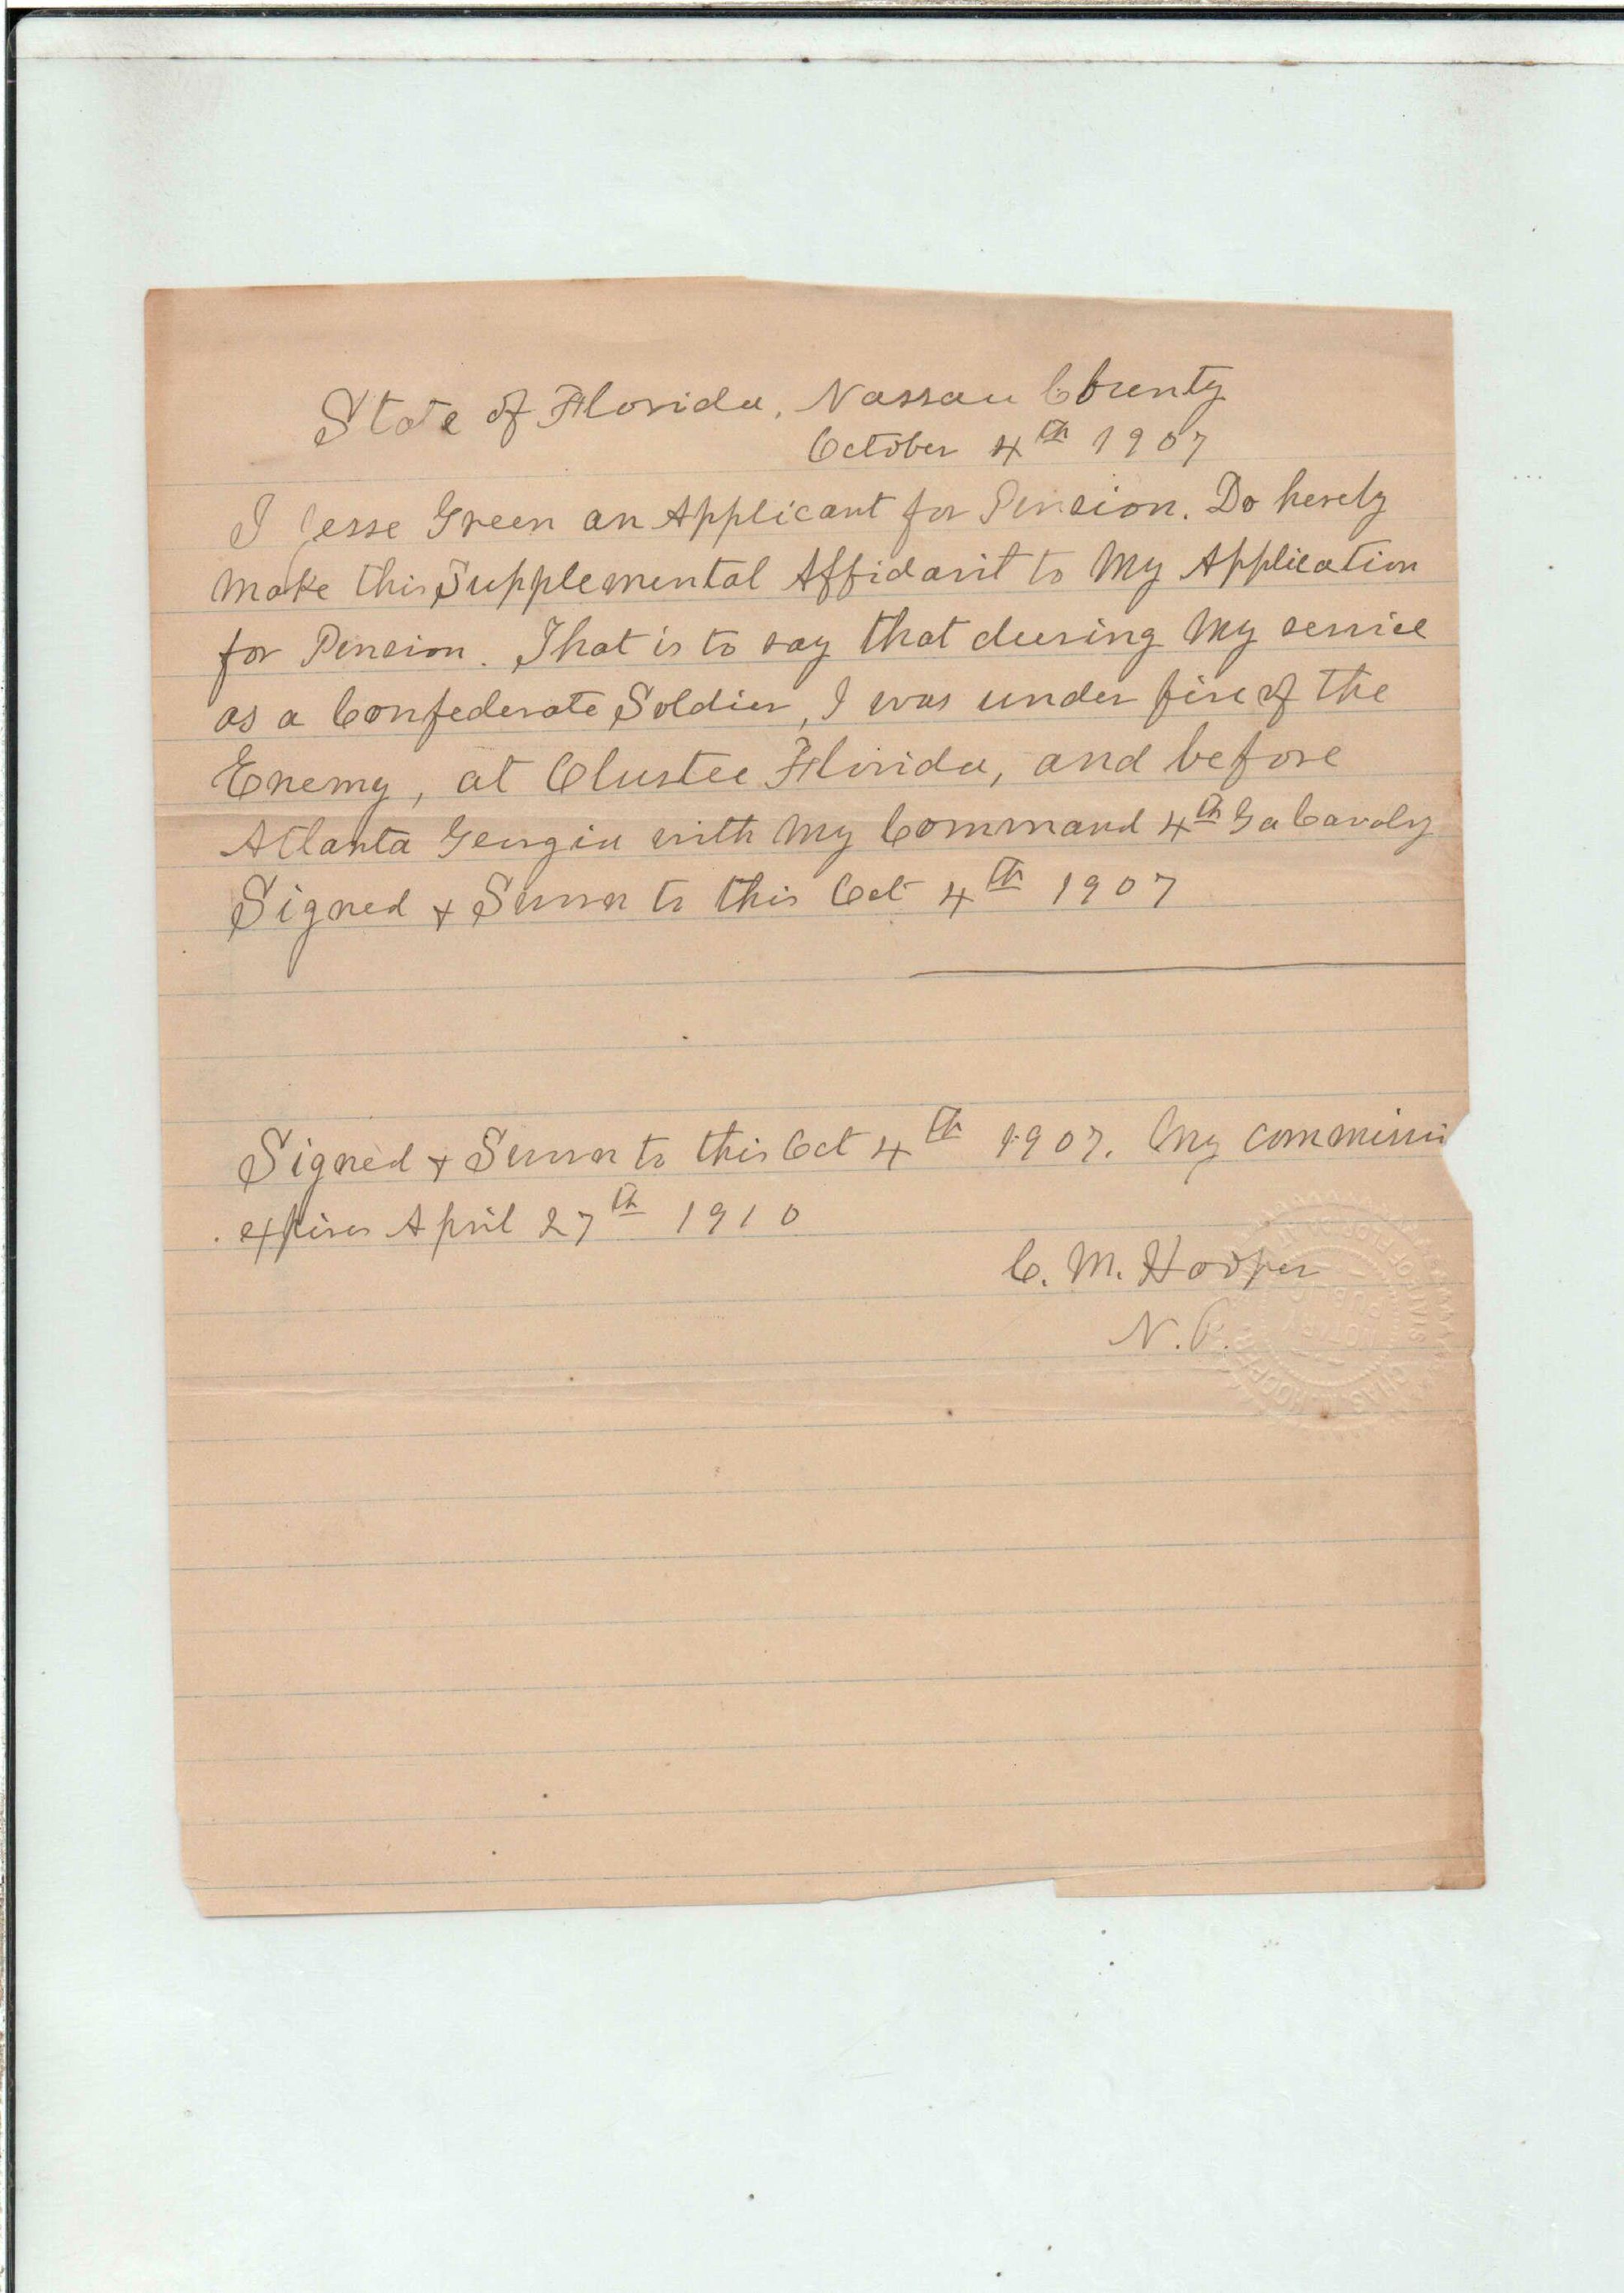 State of Florida, Nassau County
October 4th 1907
I Jesse Green an Applicant for Pension. Do hereby
Make this Supplemental Affidavit to My Application
for Pension. That is to say that during My service
as a Confederate Soldier, I was under fire of the
Enemy, at Olustee Florida, and before
Atlanta Georgia with My Command 4th Ga Cavaly
Signed + Sworn to this Oct 4th 1907
Signed + Sworn to this Oct 4th 1907. My commissi
expires April 27th 1910
C. M. Hooper
N.P.
NOTARY PUB
HOOPER
STATE OF FLORIDA